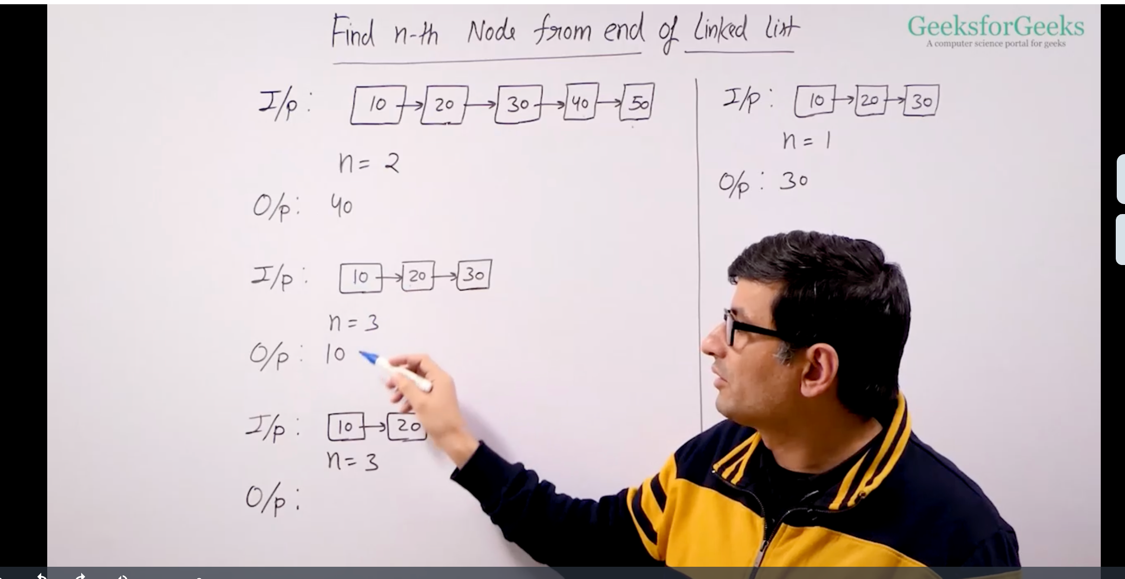 Find n-th Node from end of Linked list
GeeksforGeeks
A computer science portal for geeks
I/p: 10 → 20 → 30 → 40 → 50
n = 2
O/p: 40
I/p: 10 → 20 → 30
n = 3
O/p: 10
I/p: 10 → 20
n = 3
O/p:
I/p: 10 → 20 → 30
n = 1
O/p: 30